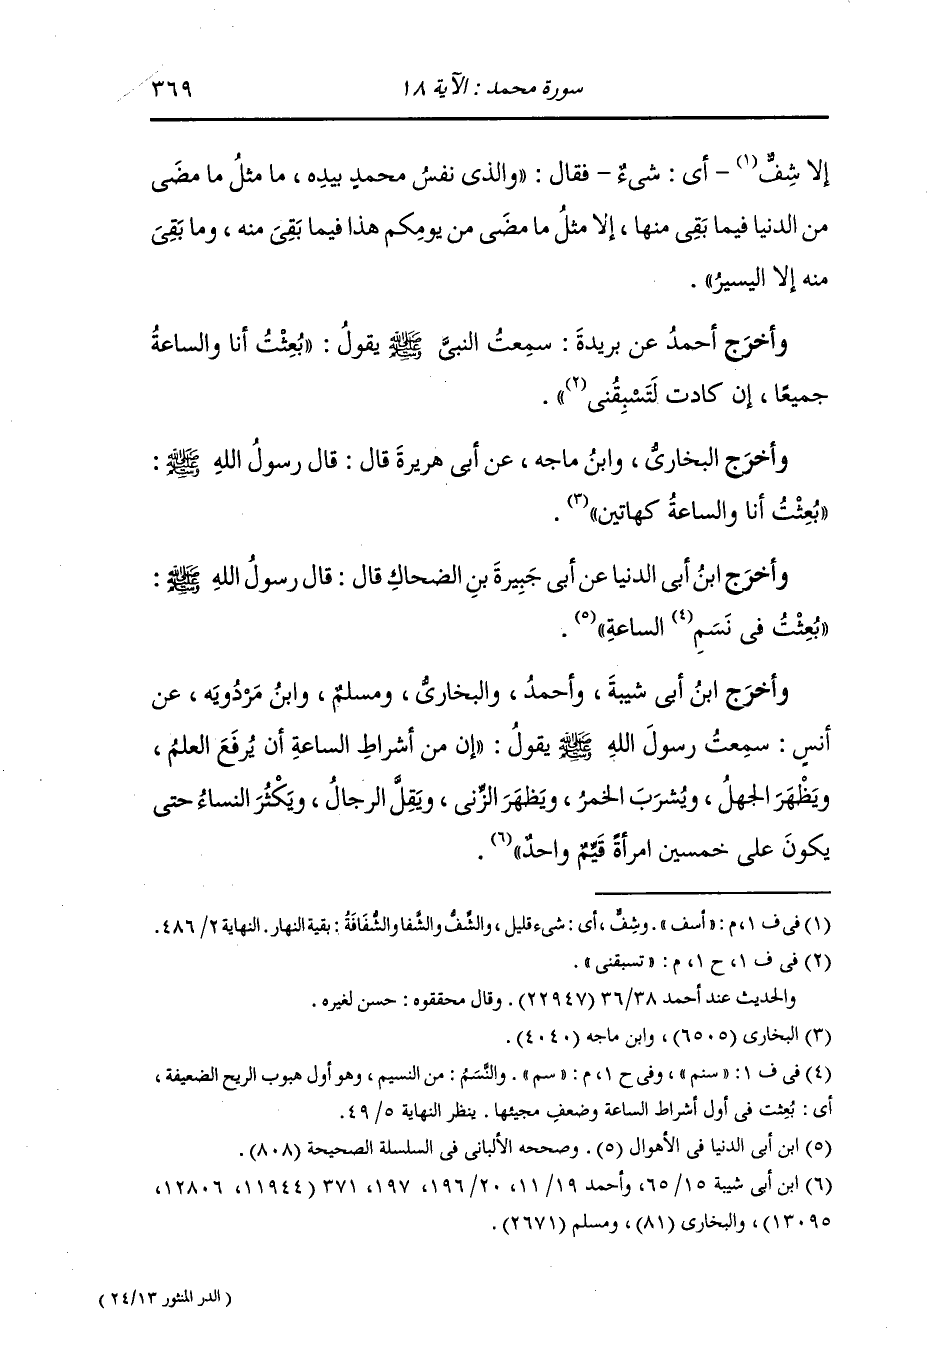 سورة محمد : الآية ١٨
٣٦٩
إلا شِفٌّ(١) – أى : شىءٌ – فقال : «والذى نفسُ محمدٍ بيدِه ، ما مثلُ ما مضَى
من الدنيا فيما بَقِى منها ، إلا مثلُ ما مضَى من يومِكم هذا فيما بَقِىَ منه ، وما بَقِىَ
منه إلا اليسيرُ» .
وأخرَج أحمدُ عن بريدةَ : سمِعتُ النبىَّ ﷺ يقولُ : «بُعِثْتُ أنا والساعةُ
جميعًا ، إن كادت لَتَسْبِقُنى(٢)» .
وأخرَج البخارىُّ ، وابنُ ماجه ، عن أبى هريرةَ قال : قال رسولُ اللهِ ﷺ :
«بُعِثْتُ أنا والساعةُ كهاتين»(٣) .
وأخرَج ابنُ أبى الدنيا عن أبى جَبِيرةَ بنِ الضحاكِ قال : قال رسولُ اللهِ ﷺ :
«بُعِثْتُ فى نَسَمِ(٤) الساعةِ»(٥) .
وأخرَج ابنُ أبى شيبةَ ، وأحمدُ ، والبخارىُّ ، ومسلمٌ ، وابنُ مَرْدُويَه ، عن
أنسٍ : سمِعتُ رسولَ اللهِ ﷺ يقولُ : «إن من أشراطِ الساعةِ أن يُرفَعَ العلمُ ،
ويَظْهَرَ الجهلُ ، ويُشرَبَ الخمرُ ، ويَظهَرَ الزِّنى ، ويَقِلَّ الرجالُ ، ويَكْثُرَ النساءُ حتى
يكونَ على خمسين امرأةً قَيِّمٌ واحدٌ»(٦) .
(١) فى ف ١، م : «أسف» . وشِفٌّ ، أى : شىء قليل ، والشِّفُّ والشَّفا والشُّفَافَةُ : بقية النهار . النهاية ٢/ ٤٨٦.
(٢) فى ف ١، ح ١، م : «تسبقنى» .
والحديث عند أحمد ٣٦/٣٨ (٢٢٩٤٧) . وقال محققوه : حسن لغيره .
(٣) البخارى (٦٥٠٥) ، وابن ماجه (٤٠٤٠) .
(٤) فى ف ١ : «سنم» ، وفى ح ١، م : «سم» . والنَّسَمُ : من النسيم ، وهو أول هبوب الريح الضعيفة ،
أى : بُعِثت فى أول أشراط الساعة وضعفِ مجيئها . ينظر النهاية ٥/ ٤٩.
(٥) ابن أبى الدنيا فى الأهوال (٥) . وصححه الألبانى فى السلسلة الصحيحة (٨٠٨) .
(٦) ابن أبى شيبة ١٥/ ٦٥، وأحمد ١٩/ ١١، ٢٠/ ١٩٦، ١٩٧، ٣٧١ (١١٩٤٤، ١٢٨٠٦،
١٣٠٩٥) ، والبخارى (٨١) ، ومسلم (٢٦٧١) .
( الدر المنثور ٢٤/١٣ )